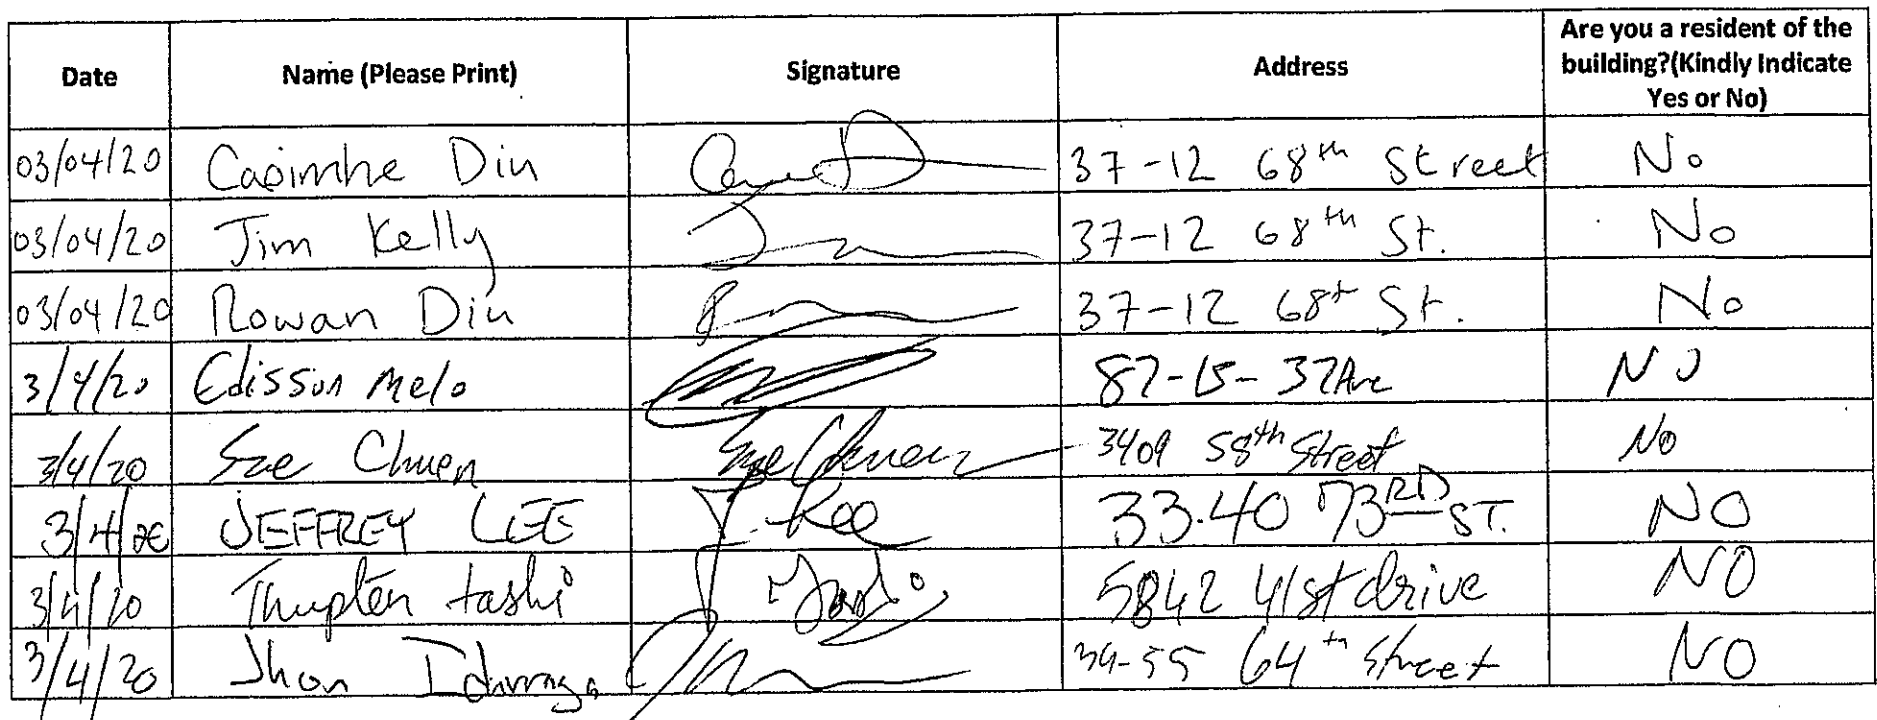 Date Name (Please Print) Signature Address Are you a resident of the building?(Kindly Indicate Yes or No)
03/04/20 Caoimhe Din 37-12 68th Street No
03/04/20 Jim Kelly 37-12 68th St. No
03/04/20 Rowan Din 37-12 68th St. No
3/4/20 Edisson Melo 87-15-37Ave NO
3/4/20 Sze Chuen Sze Chuen 3409 58th Street No
3/4/20 JEFFREY LEE J. Lee 33-40 73RD ST. NO
3/4/20 Thupten tashi Tashi 5842 41st drive NO
3/4/20 Jhon 39-55 64th Street NO